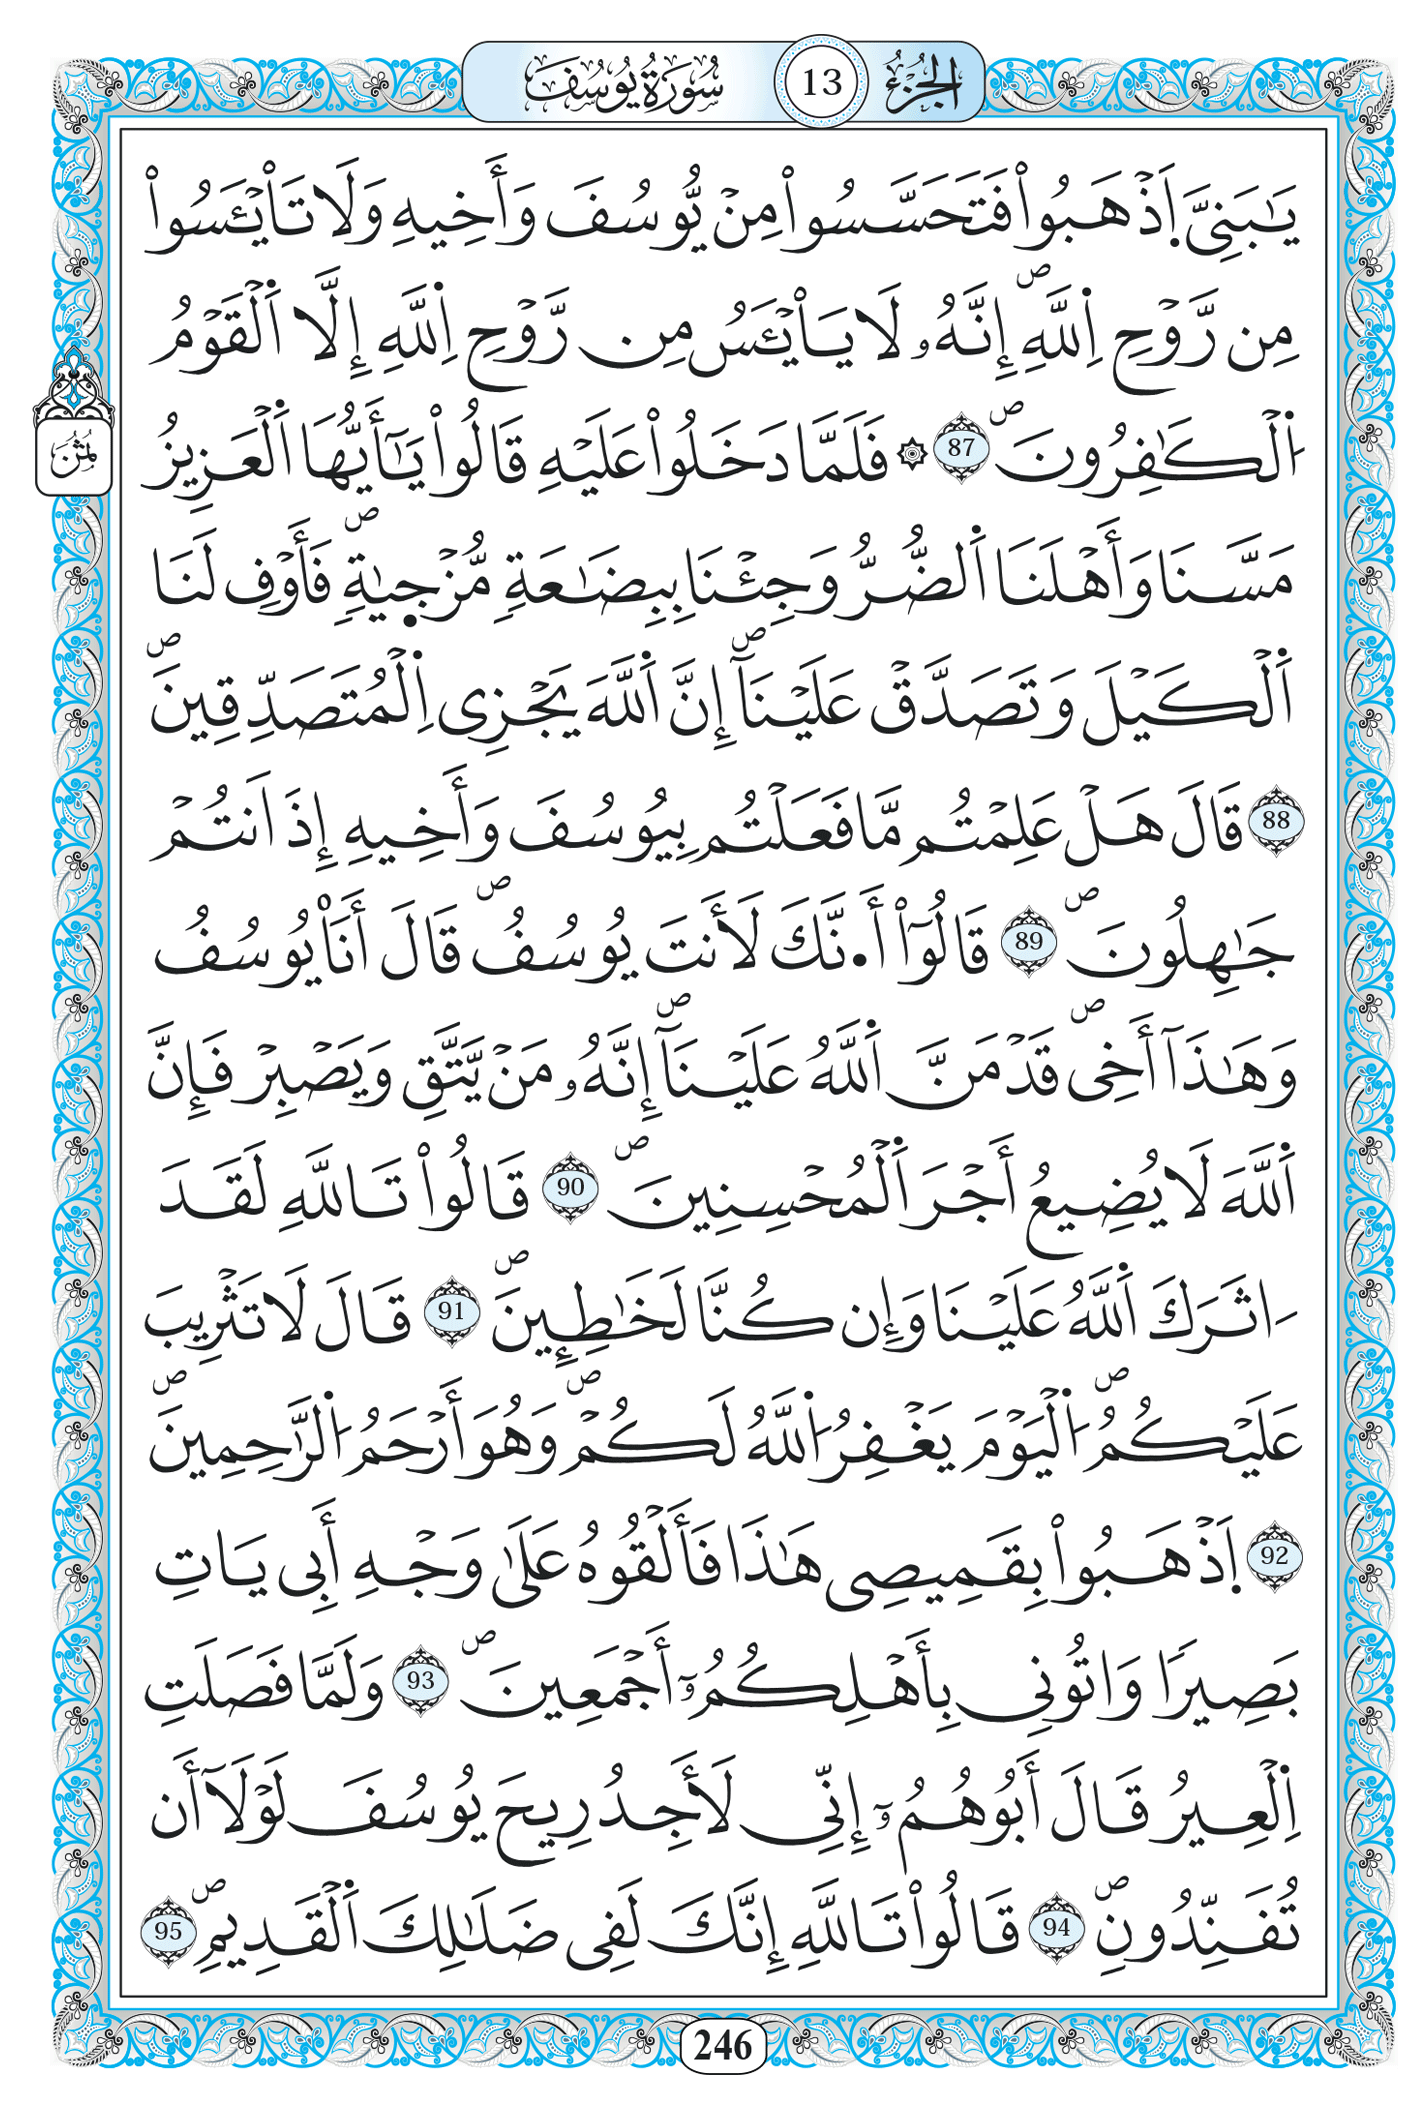 الجزء 13 سورة يوسف
يَٰبَنِيَّ اَ۪ذْهَبُواْ فَتَحَسَّسُواْ مِنْ يُّوسُفَ وَأَخِيهِ وَلَا تَاْيْـَٔسُواْ
مِن رَّوْحِ اِ۬للَّهِۖ إِنَّهُۥ لَا يَاْيْـَٔسُ مِن رَّوْحِ اِ۬للَّهِ إِلَّا اَ۬لْقَوْمُ
اُ۬لْكَٰفِرُونَۖ 87 ۞ فَلَمَّا دَخَلُواْ عَلَيْهِ قَالُواْ يَٰٓأَيُّهَا اَ۬لْعَزِيزُ
ثمن
مَسَّنَا وَأَهْلَنَا اَ۬لضُّرُّ وَجِئْنَا بِبِضَٰعَةٍ مُّزْج۪يٰةٍۖ فَأَوْفِ لَنَا
اَ۬لْكَيْلَ وَتَصَدَّقْ عَلَيْنَآۖ إِنَّ اَ۬للَّهَ يَجْزِے اِ۬لْمُتَصَدِّقِينَۖ
88 قَالَ هَلْ عَلِمْتُم مَّا فَعَلْتُم بِيُوسُفَ وَأَخِيهِ إِذَ اَنتُمْ
جَٰهِلُونَۖ 89 قَالُوٓاْ أَ.نَّكَ لَأَنتَ يُوسُفُۖ قَالَ أَنَا۠ يُوسُفُ
وَهَٰذَآ أَخِےۖ قَدْ مَنَّ اَ۬للَّهُ عَلَيْنَآۖ إِنَّهُۥ مَنْ يَّتَّقِ وَيَصْبِرْ فَإِنَّ
اَ۬للَّهَ لَا يُضِيعُ أَجْرَ اَ۬لْمُحْسِنِينَۖ 90 قَالُواْ تَاللَّهِ لَقَدَ
اٰثَرَكَ اَ۬للَّهُ عَلَيْنَا وَإِن كُنَّا لَخَٰطِـِٕينَۖ 91 قَالَ لَا تَثْرِيبَ
عَلَيْكُمُۖ اُ۬لْيَوْمَ يَغْفِرُ اُ۬للَّهُ لَكُمْۖ وَهُوَ أَرْحَمُ اُ۬لرَّٰحِمِينَۖ
92 اَ۪ذْهَبُواْ بِقَمِيصِے هَٰذَا فَأَلْقُوهُ عَلَىٰ وَجْهِ أَبِے يَاتِ
بَصِيراً وَاتُونِے بِأَهْلِكُمُۥٓ أَجْمَعِينَۖ 93 وَلَمَّا فَصَلَتِ
اِ۬لْعِيرُ قَالَ أَبُوهُمُۥٓ إِنِّے لَأَجِدُ رِيحَ يُوسُفَ لَوْلَآ أَن
تُفَنِّدُونِۖ 94 قَالُواْ تَاللَّهِ إِنَّكَ لَفِے ضَلَٰلِكَ اَ۬لْقَدِيمِۖ 95
246